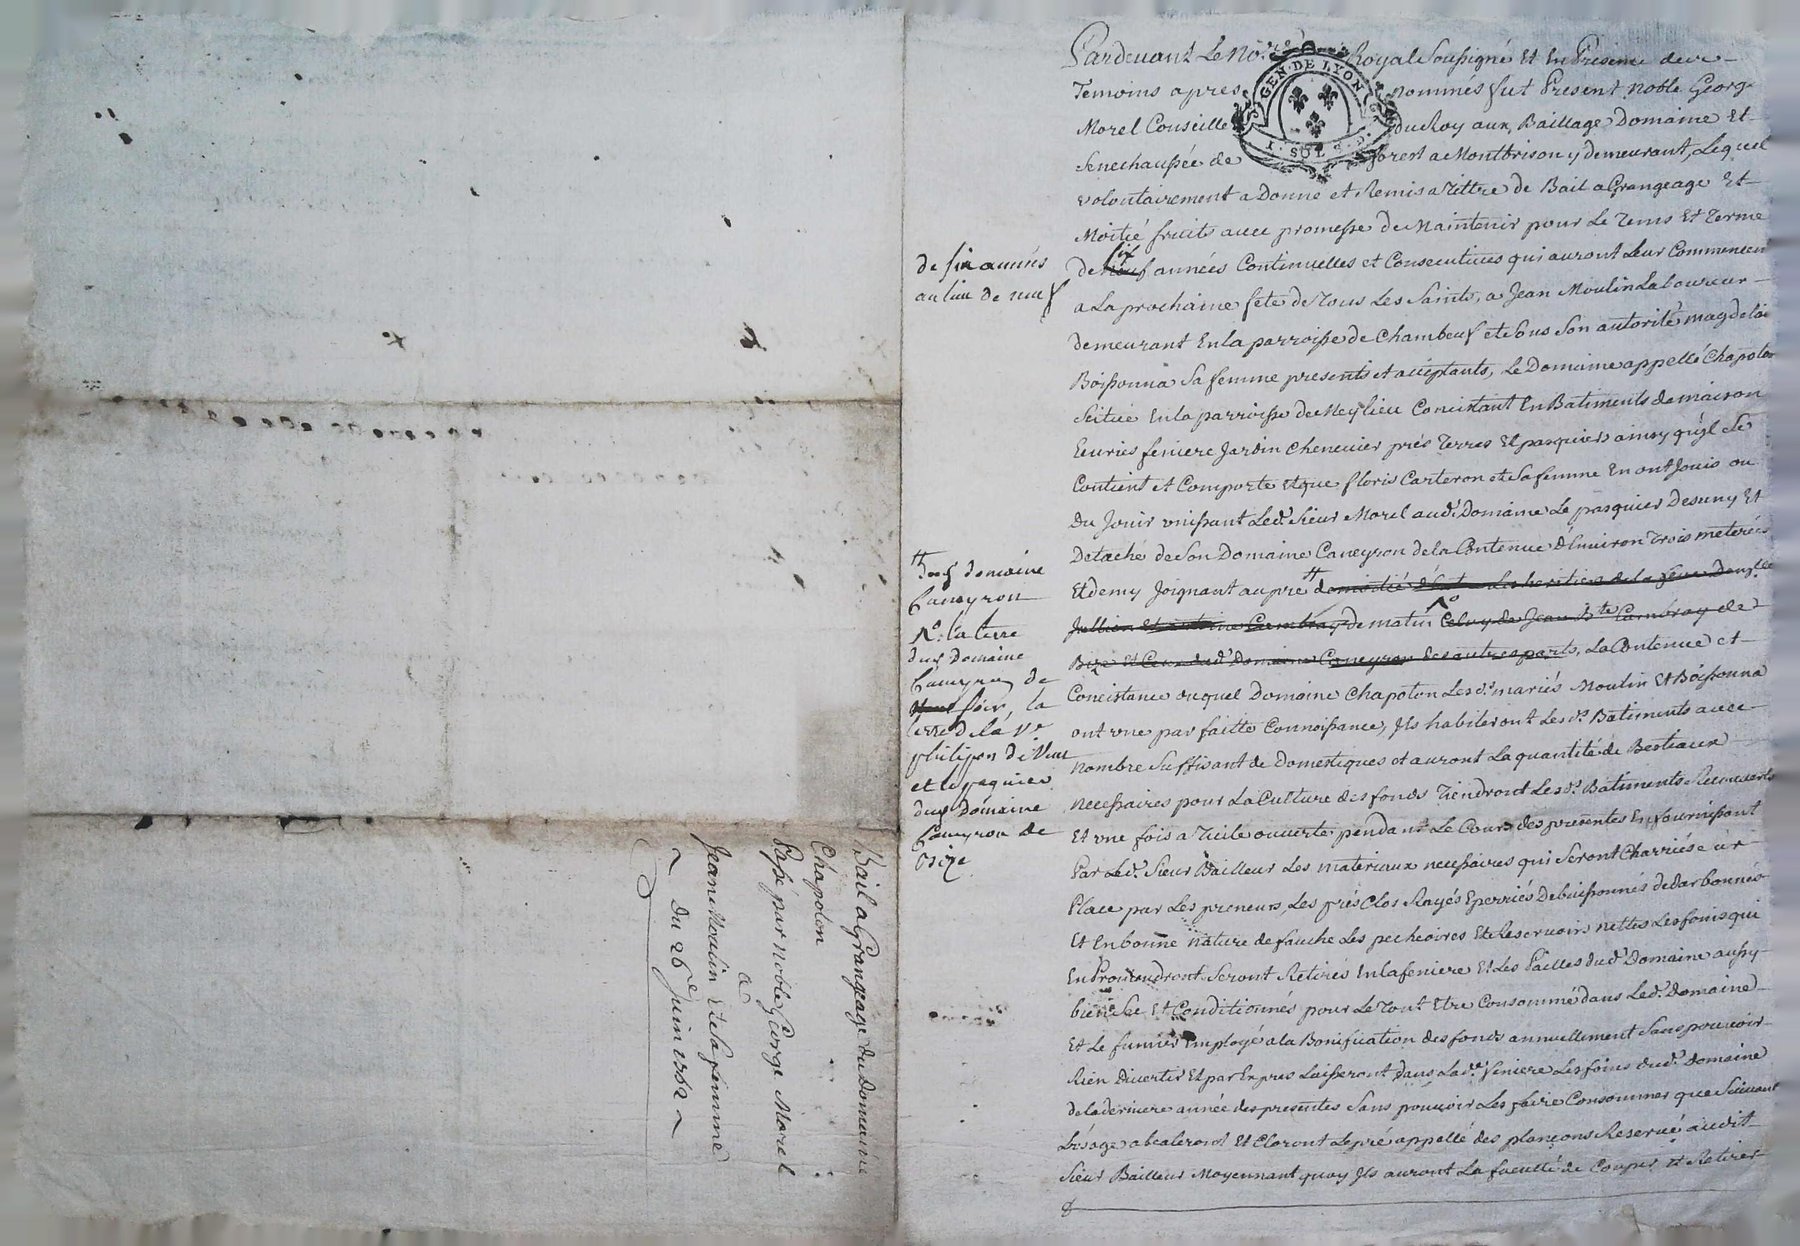 Pardevant Le No.re Royal Soussigné Et En Presence des
GEN. DE LYON
I. SOL
Temoins apres nommés fut Present noble George
Morel Conseiller du Roy aux Baillage Domaine Et
Senechaussée de forest a Montbrison y demeurant, Lequel
volontairement a Donne et Remis a Tittre de Bail a Grangeage Et
Moitié fruits avec promesse de Maintenir pour Le Tems Et Terme
de neuf six années Continuelles et Consecutives qui auront Leur Commencem
a La prochaine fete de Tous Les Saints, a Jean Moulin Laboureur
demeurant En la parroisse de Chambeuf et sous Son autorité magdelai
Boissonna Sa femme presents et acceptants, Le Domaine appellé Chapoton
Scitué En la parroisse de Meylieu Concistant En Batiments de maison
Ecuries feniere Jardin Chenevier prés Terres Et pasquiers ainsy qu'yl Se
Contient et Comporte et que floris Carteron et Sa femme En ont Jouis ou
Du Jouir unissant Led. Sieur Morel aud. Domaine Le pasquier Desuny Et
Detaché de Son Domaine Caneyron de la Contenue d'Environ Trois meterées
Et demy Joignant au pré de matin
La Contenue et
Concistance duquel Domaine Chapoton Les d. mariés Moulin Et Boissonna
ont une parfaitte Connoissance, Ils habiteront Les d. Batiments avec
nombre Suffisant de Domestiques et auront La quantité de Bestiaux
necessaires pour La Culture des fonds Tiendront Les d. Batiments Recouverts
Et une fois a Tuile ouverte pendant Le Cours des presentes En fournissant
Par Led. Sieur Bailleur Les materiaux necessaires qui Seront Charriés sur
Place par Les preneurs, Les prés Clos Rayés Eperriés Debuissonnés dedarbonnés
Et En bonne nature de fauche Les pecheoires Et Reservoirs nettes Les foins qui
En Proviendront Seront Retirés En la feniere Et Les Pailles dud. Domaine aussy
bien Sec Et Conditionnés pour Le Tout Etre Consommé dans Led. Domaine
Et Le fumier Employé a la Bonification des fonds annuellement Sans pouvoir
Rien Divertir Et par Exprès Laisseront dans Lad. feniere Les foins dud. Domaine
de la derniere année des presentes Sans pouvoir Les faire Consommer que Suivant
L'usage Et Cloront Le pré appellé des plançons Reservé audit
Sieur Bailleur Moyennant quoy Ils auront La faculté de Couper Et Retirer
de six années
au lieu de neuf
dud domaine
Caneyron
la terre
dud Domaine
Caneyron de
soir, la
terre de la v.e
philipon de
et le paquier
dud Domaine
Caneyron de
bize
Bail a Grangeage du Domaine
Chapoton
Passé par noble George Morel
a
Jean Moulin Et Sa femme
Du 26e Juin